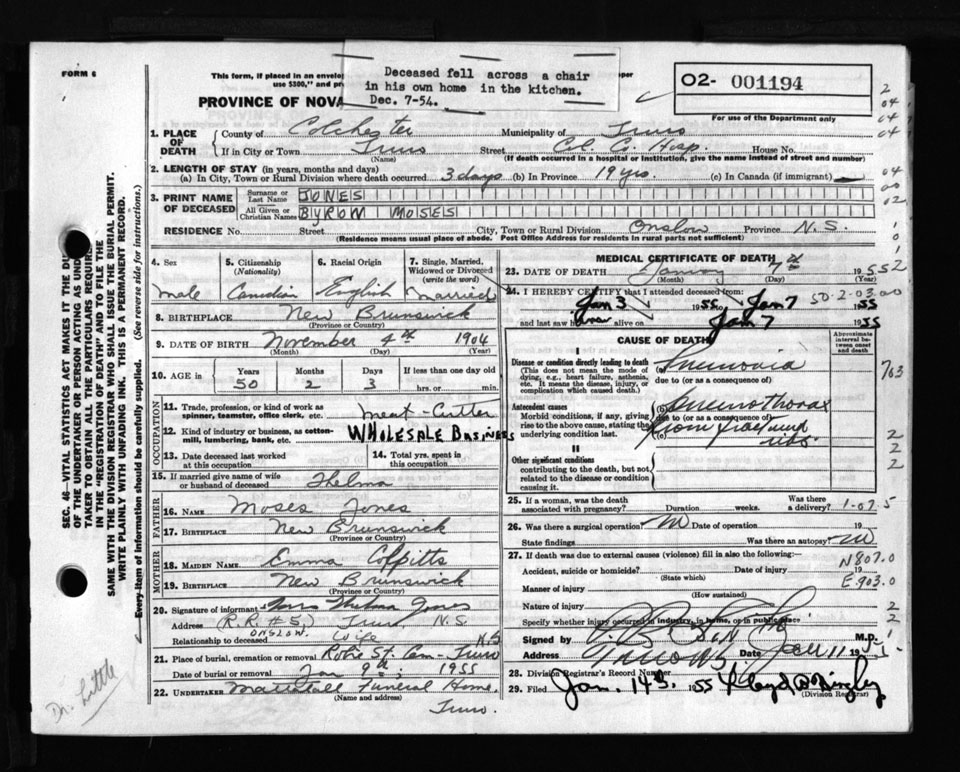 FORM 6
This form, if placed in an envelo
$300," and pr
Deceased fell across a chair
in his own home in the kitchen.
Dec. 7-54.
02- 001194
For use of the Department only
PROVINCE OF NOVA
1. PLACE OF DEATH
County of Colchester Municipality of Truro
If in City or Town Truro (Name) Street Col. C. Hosp. House No.
(If death occurred in a hospital or institution, give the name instead of street and number)
2. LENGTH OF STAY (in years, months and days)
(a) In City, Town or Rural Division where death occurred 3 days (b) In Province 19 yrs. (c) In Canada (if immigrant)
3. PRINT NAME OF DECEASED
Surname or Last Name JONES
All Given or Christian Names BYROM MOSES
RESIDENCE No. Street City, Town or Rural Division Onslow Province N.S.
(Residence means usual place of abode. Post Office Address for residents in rural parts not sufficient)
4. Sex male
5. Citizenship (Nationality) Canadian
6. Racial Origin English
7. Single, Married, Widowed or Divorced (write the word) married
8. BIRTHPLACE New Brunswick
(Province or Country)
9. DATE OF BIRTH November 4th 1904
(Month) (Day) (Year)
10. AGE in Years 50 Months 2 Days 3 If less than one day old hrs. or min.
OCCUPATION
11. Trade, profession, or kind of work as spinner, teamster, office clerk, etc. meat-Cutter
12. Kind of industry or business, as cotton-mill, lumbering, bank, etc. WHOLESALE BASINESS
13. Date deceased last worked at this occupation
14. Total yrs. spent in this occupation
15. If married give name of wife or husband of deceased Thelma
FATHER
16. NAME Moses Jones
17. BIRTHPLACE New Brunswick
(Province or Country)
MOTHER
18. MAIDEN NAME Emma Colpitts
19. BIRTHPLACE New Brunswick
(Province or Country)
20. Signature of informant Mrs Thelma Jones
Address (R.R. #5,) Truro N.S.
ONSLOW. N.S
Relationship to deceased Wife
21. Place of burial, cremation or removal Robie St. Cem-Truro
Date of burial or removal Jan 9th. 1955
22. UNDERTAKER Mattatall Funeral Home.
(Name and address)
Truro.
MEDICAL CERTIFICATE OF DEATH
23. DATE OF DEATH January 7th 1955
(Month) (Day) (Year)
24. I HEREBY CERTIFY that I attended deceased from:
Jan 3 1955 to Jan 7 1955
50-2-03.00
and last saw h alive on Jan 7 1955
CAUSE OF DEATH
Approximate interval between onset and death
I
Disease or condition directly leading to death
(This does not mean the mode of dying, e.g., heart failure, asthenia, etc. It means the disease, injury, or complication which caused death.)
due to (or as a consequence of)
763
Antecedent causes
Morbid conditions, if any, giving rise to the above cause, stating the underlying condition last.
(b) Pneumothorax
due to (or as a consequence of)
(c) from fractured ribs.
II
Other significant conditions
contributing to the death, but not related to the disease or condition causing it.
25. If a woman, was the death associated with pregnancy? Duration weeks. Was there a delivery?
1-07.5
26. Was there a surgical operation? Date of operation 19
State findings Was there an autopsy?
27. If death was due to external causes (violence) fill in also the following:—
Accident, suicide or homicide? Date of injury 19
(State which)
N807.0
Manner of injury
(How sustained)
E.903.0
Nature of injury
Specify whether injury occurred in industry, in home, or in public place
Signed by M.D.
Address Truro NS Date Jan 11 195
28. Division Registrar's Record Number
29. Filed Jan. 14th. 1955
(Division Registrar)
SEC. 46—VITAL STATISTICS ACT MAKES IT THE DU
OF THE UNDERTAKER OR PERSON ACTING AS UND
TAKER TO OBTAIN ALL THE PARTICULARS REQUIR
IN THE "REGISTRATION OF DEATH" AND TO FILE THE
SAME WITH THE DIVISION REGISTRAR WHO SHALL ISSUE THE BURIAL PERMIT.
WRITE PLAINLY WITH UNFADING INK. THIS IS A PERMANENT RECORD.
Every item of information should be carefully supplied. (See reverse side for instructions.)
Dr. Little